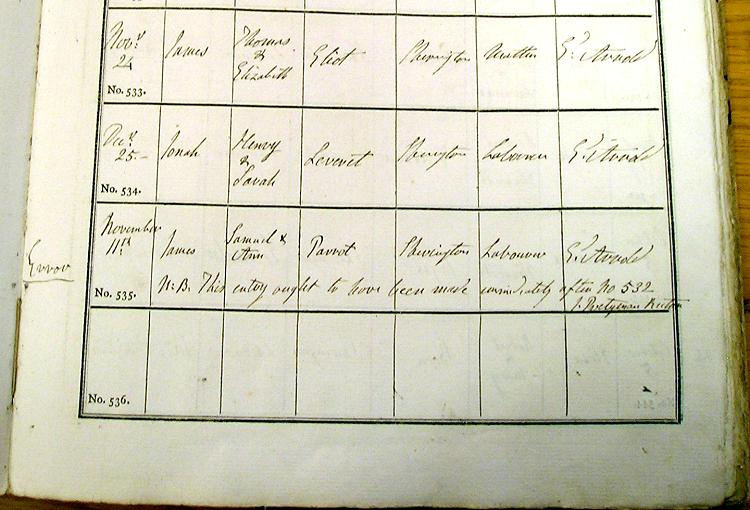 Novr 24 James Thomas & Elizabeth Eliot Sherington
No. 533.
Decr 25.- Jonah Henry & Sarah Leveret Sherington Labourer
No. 534.
November 11th James Samuel & Ann Parrot Sherington Labourer
Error
No. 535. N:B. This entry ought to have been made immediately after No 532
J. Pretyman Rector
No. 536.